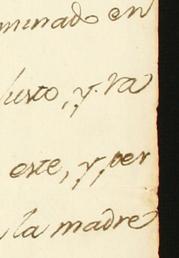 minado en
justo, y va
este, y per
la madre